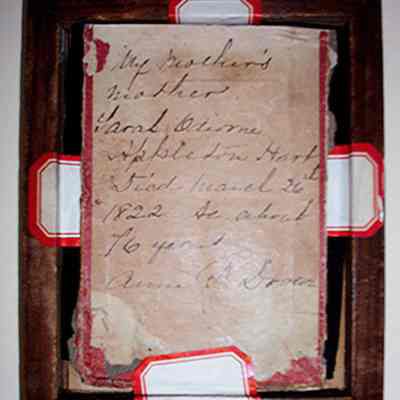 My Mother's
mother
Sarah Odiorne
Appleton Hart
Died March 26th
1822 Ae about
76 years
Anne